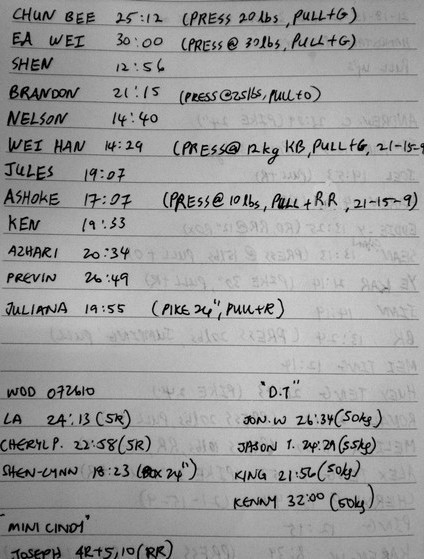 CHUN BEE 25:12 (PRESS 20lbs, PULL+G)
EA WEI 30:00 (PRESS@ 30lbs, PULL+G)
SHEN 12:56
BRANDON 21:15 (PRESS@25lbs, PULL+O)
NELSON 14:40
WEI HAN 14:29 (PRESS@ 12kg KB, PULL+G, 21-15-9)
JULES 19:07
ASHOKE 17:07 (PRESS@ 10lbs, PULL+RR, 21-15-9)
KEN 19:33
AZHARI 20:34
PREVIN 26:49
JULIANA 19:55 (PIKE 24", PULL+R)
WOD 072610 "D.T"
LA 24:13 (5R) JON.W 26:34 (50kg)
CHERYL P. 22:58 (5R) JASON T. 24:29 (55kg)
SHEN-LYNN 18:23 (BOX 24") KING 21:56 (50kg)
KENNY 32:00 (60kg)
"MINI CINDY"
JOSEPH 4R+5,10 (RR)